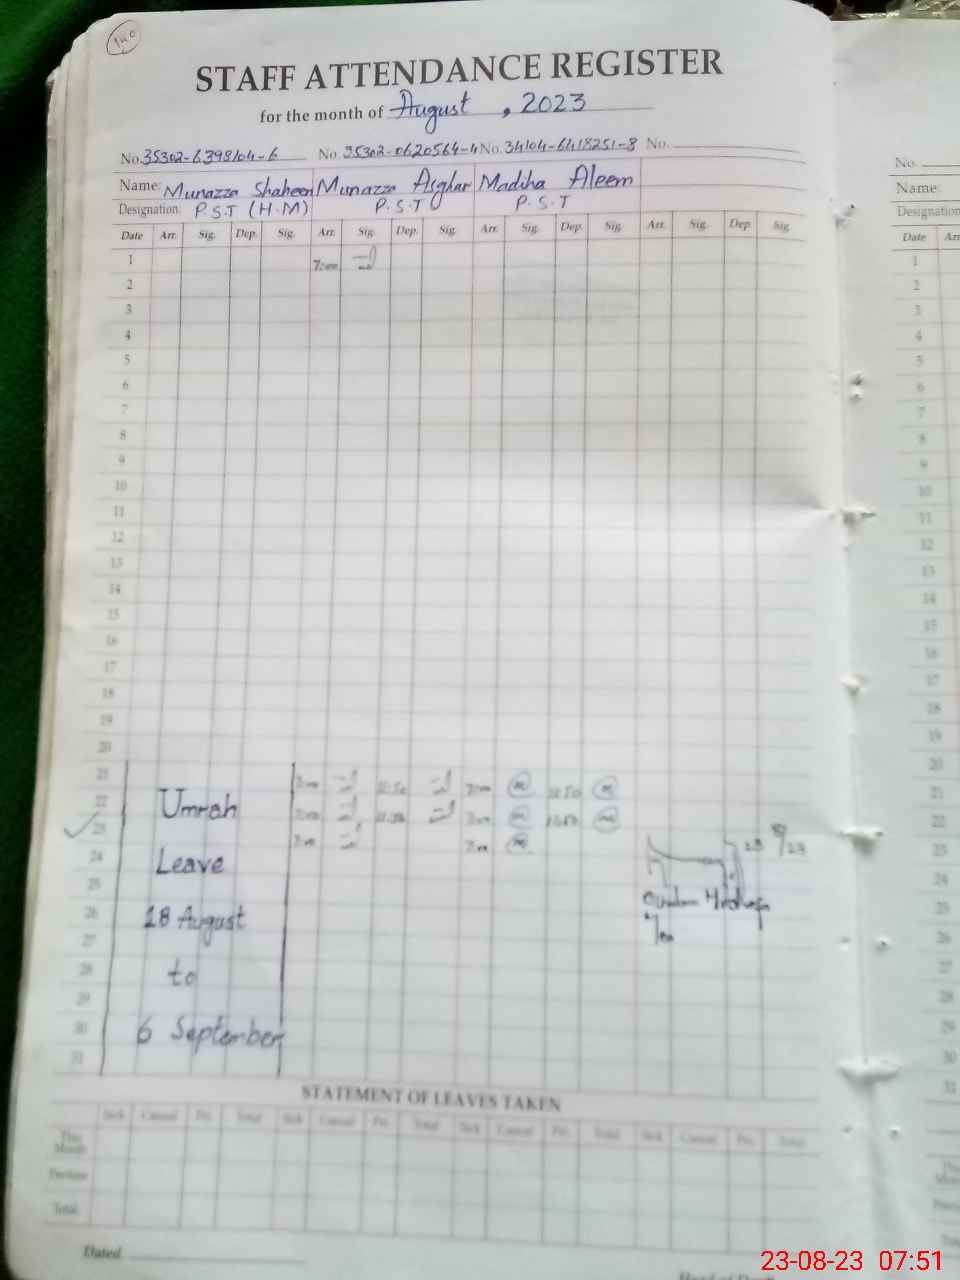 140
STAFF ATTENDANCE REGISTER
for the month of August, 2023
No. 35302-6398104-6 No. 35302-0620564-4 No. 34104-6418251-8 No.
Name: Munazza Shaheen Munazza Asghar Madiha Aleem
Designation: P.S.T (H.M) P.S.T P.S.T
Date Arr. Sig. Dep. Sig. Arr. Sig. Dep. Sig. Arr. Sig. Dep. Sig. Arr. Sig. Dep. Sig.
1 7:00
2
3
4
5
6
7
8
9
10
11
12
13
14
15
16
17
18
19
20
21 7:00 11:50 7:00 11:50
22 7:00 11:50 7:00 11:50
23 7:00 7:00
24
25
26
27
28
29
30
31
Umrah
Leave
18 August
to
6 September
STATEMENT OF LEAVES TAKEN
Sick Casual Pri. Total Sick Casual Pri. Total Sick Casual Pri. Total Sick Casual Pri. Total
This Month
Previous
Total
Dated
No.
Name:
Designation
Date Arr
1
2
3
4
5
6
7
8
9
10
11
12
13
14
15
16
17
18
19
20
21
22
23
24
25
26
27
28
29
30
31
23-08-23 07:51